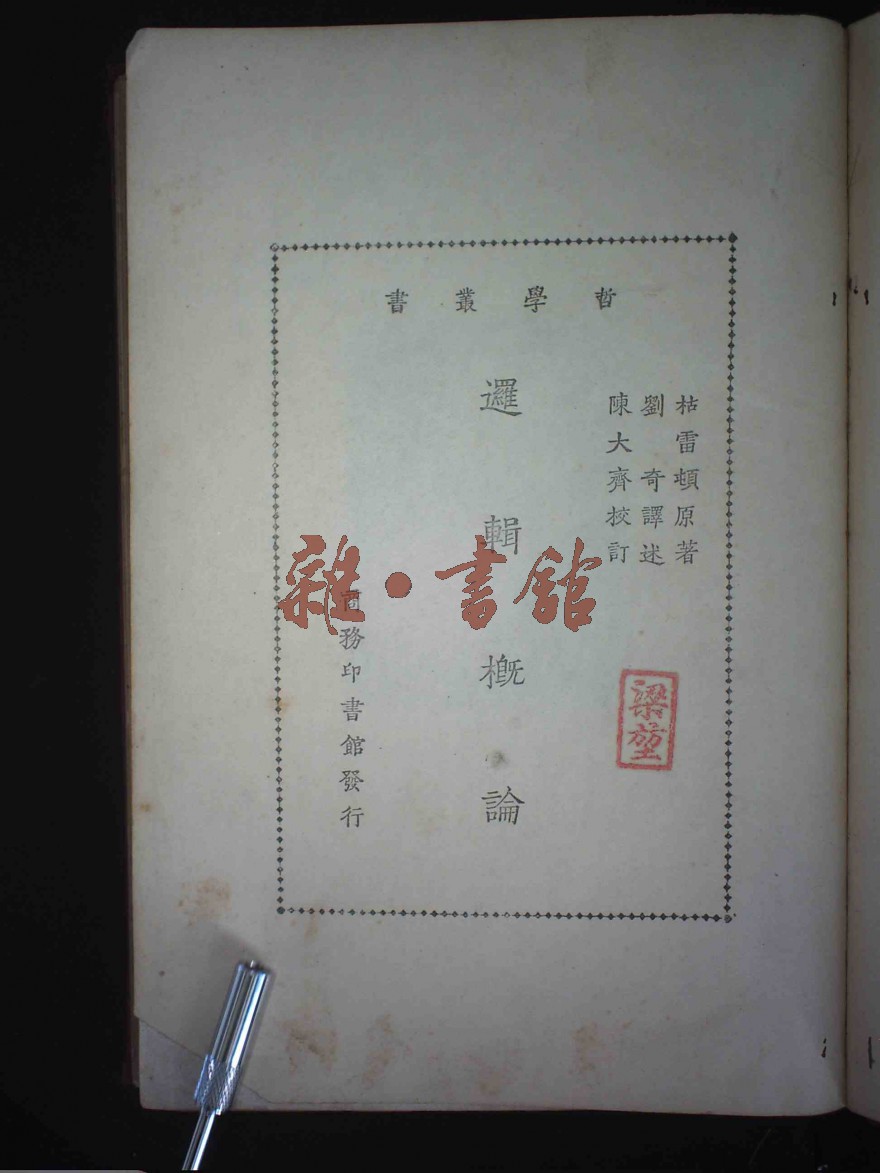 哲學叢書
枯雷頓原著
劉奇譯述
陳大齊校訂
邏輯概論
商務印書館發行
雜·書館